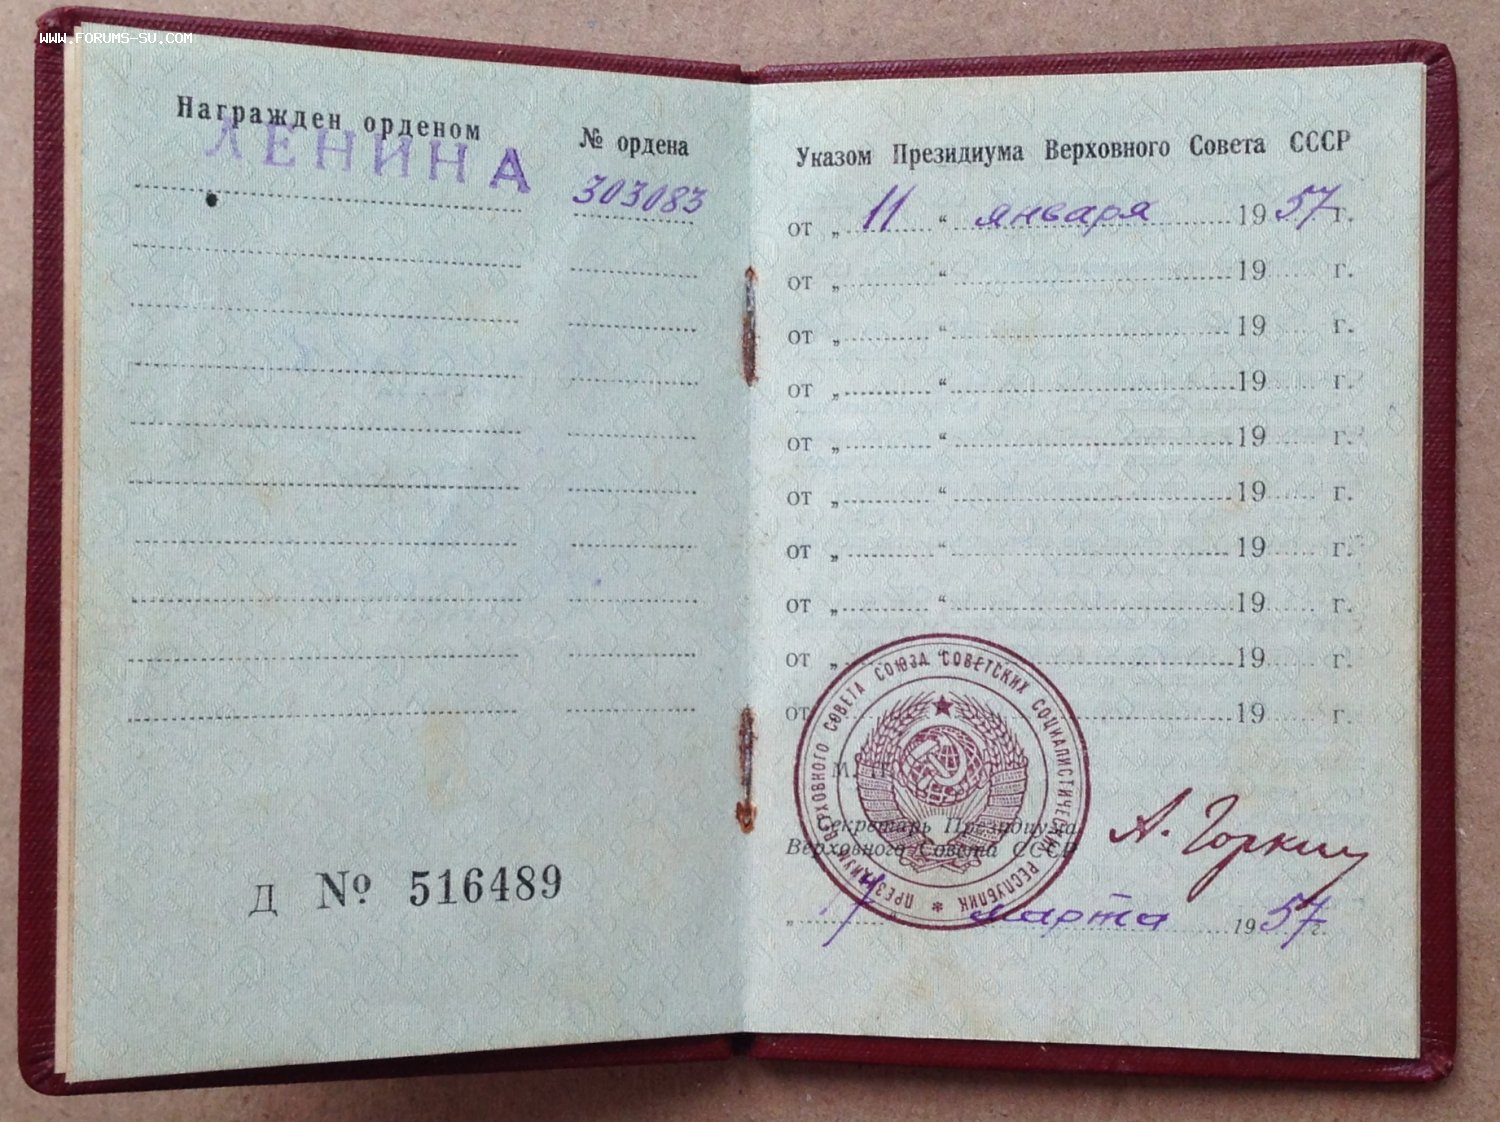 WWW.FORUMS-SU.COM
Награжден орденом
№ ордена
ЛЕНИНА
303083
Д № 516489
Указом Президиума Верховного Совета СССР
от „ 11 “ января 1957 г.
от „ “ 19 г.
от „ “ 19 г.
от „ “ 19 г.
от „ “ 19 г.
от „ “ 19 г.
от „ “ 19 г.
от „ “ 19 г.
от „ “ 19 г.
от 19 г.
М. П.
ПРЕЗИДИУМ ВЕРХОВНОГО СОВЕТА СОЮЗА СОВЕТСКИХ СОЦИАЛИСТИЧЕСКИХ РЕСПУБЛИК
Секретарь Президиума
Верховного Совета СССР
А. Горкин
„ “ марта 1957 г.